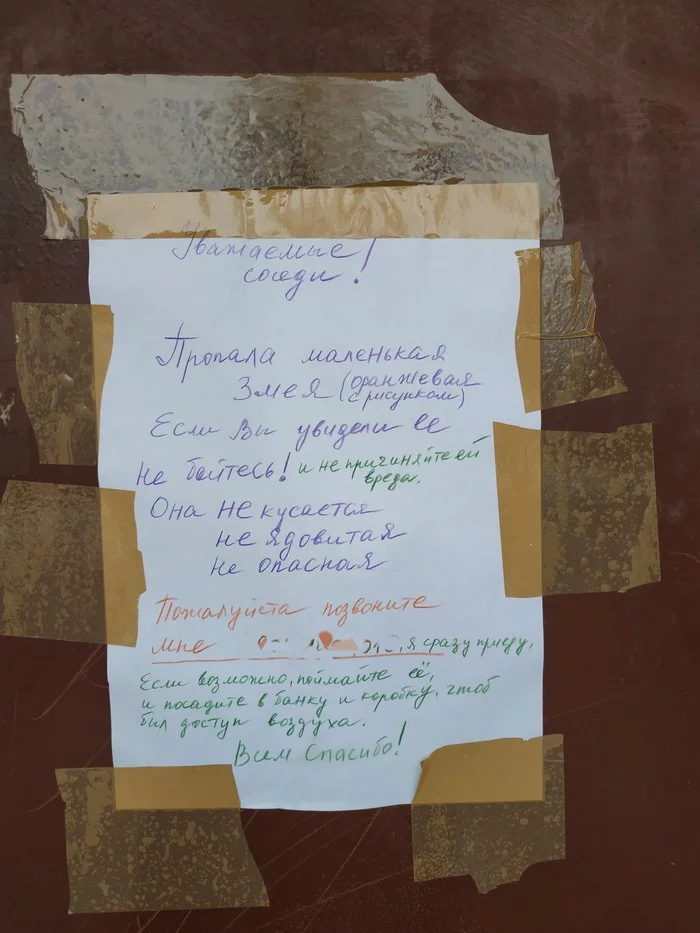 Уважаемые
соседи!
Пропала маленькая
Змея (оранжевая
с рисунком)
Если Вы увидели ее
Не бойтесь! и не причиняйте ей
вреда.
Она НЕ кусается
не ядовитая
не опасная
Пожалуйста позвоните
мне я сразу приеду,
Если возможно, поймайте её,
и посадите в банку и коробку, чтоб
был доступ воздуха.
Всем Спасибо!